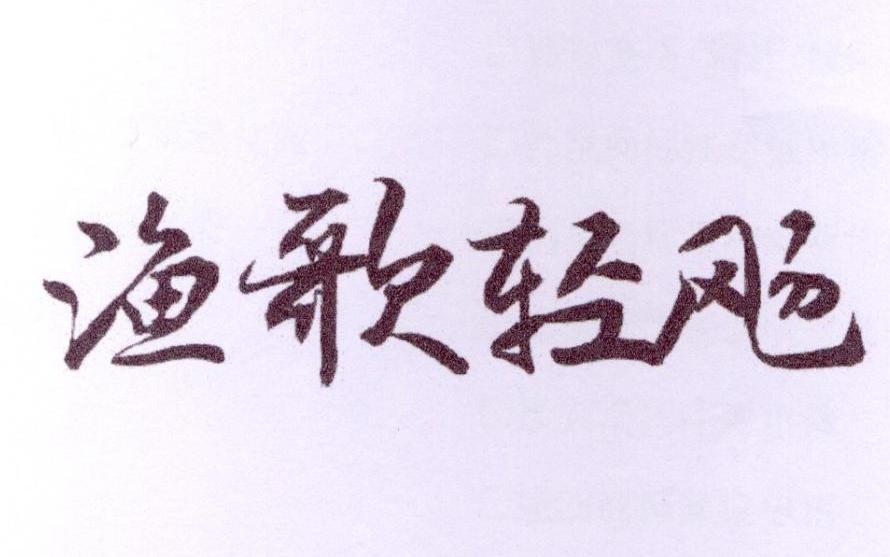 渔歌轻飏